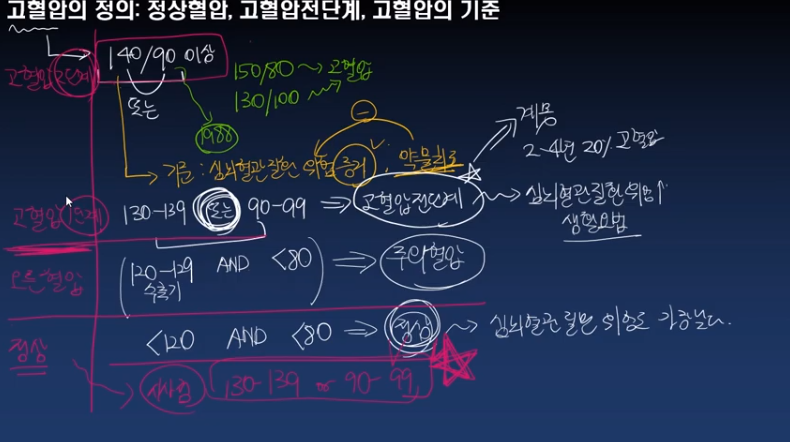 고혈압의 정의: 정상혈압, 고혈압전단계, 고혈압의 기준
고혈압 2단계
140/90 이상
또는
150/80 → 고혈압
130/100
1988
기준 : 심뇌혈관 질환 위험 증거, 약물치료
계몽
2-4년 20% 고혈압
고혈압 1단계
130-139 또는 90-99 ⇒ 고혈압전단계
심뇌혈관질환 위험↑
생활요법
오른 혈압
(120-129 AND <80) ⇒ 주의혈압
수축기
정상
<120 AND <80 ⇒ 정상 → 심뇌혈관 질환 위험도 가장 낮다.
130-139 or 90-99